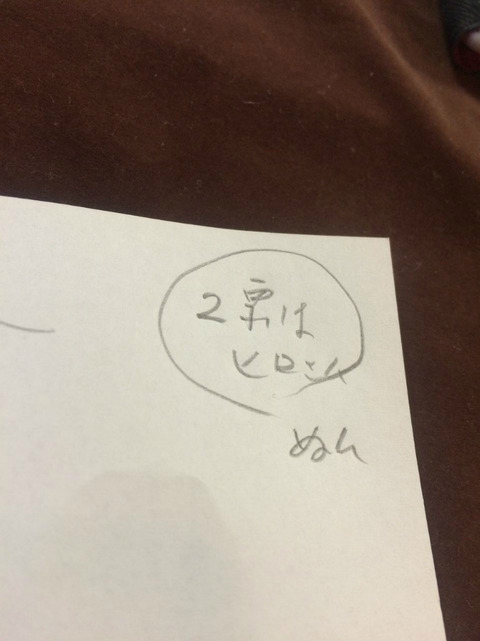 2票は
ヒロシ
ぬん